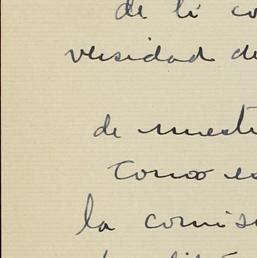 de li co
versidad de
de nuestr
Como es
la comis